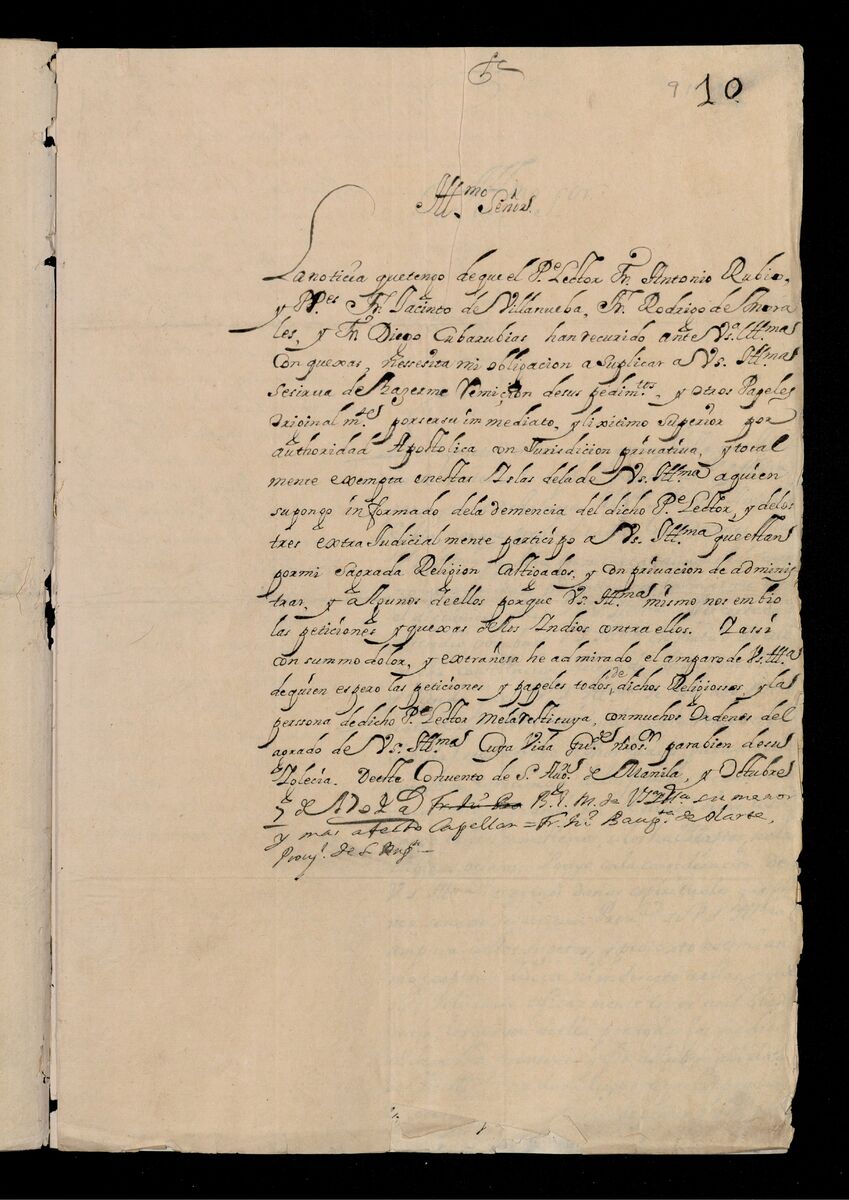 9 10
Illmo Señor
La noticia que tengo de que el Pe Lector Fr. Antonio Rubio,
y PPes Fr. Jacinto de Villanueba, Fr. Rodrigo de Mora
les, y Fr. Diego Cubarubias han recurido ante Vsa Illma
con quexas, nessesita mi obligacion a suplicar a Vs. Illma
se sirva de hazerme remiçion de sus pedimtos, y otros Papeles
original mte por ser su immediato, y lixitimo superior por
authoridad Apostolica con Jurisdicion privativa, y total
mente exempta en estas Islas de la de Vs. Illma a quien
supongo informado de la demencia del dicho Pe Lector, y de los
tres extra Judicial mente participo a Vs. Illma que estan
por mi sagrada Religion castigados, y con privacion de adminis
trar, y a algunos de ellos porque Vs. Illma mismo nos embio
las peticiones y quexas de los Indios contra ellos. I assi
con summo dolor, y extrañesa he admirado el amparo de Vs. Illma
de quien espero las peticiones y papeles todos de dichos Religiossos, y la
perssona de dicho Pe Lector me la restituya, con muchos ordenes del
agrado de Vs. Illma Cuya Vida gude nro Sr para bien de su
Iglecia. Deste Convento de Sn Augn de Manila, y Octubre
7 de 1707 a B. l. M. de Vsa Illma su menor
y mas afecto Capellan = Fr. Ju Baupta de Olarte,
Provl. de S. Augn